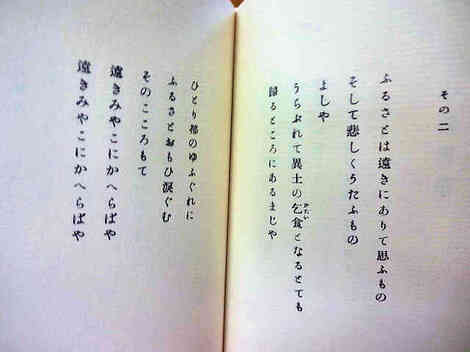 その二
ふるさとは遠きにありて思ふもの
そして悲しくうたふもの
よしや
うらぶれて異土の乞食となるとても
かたゐ
帰るところにあるまじや
ひとり都のゆふぐれに
ふるさとおもひ涙ぐむ
そのこころもて
遠きみやこにかへらばや
遠きみやこにかへらばや